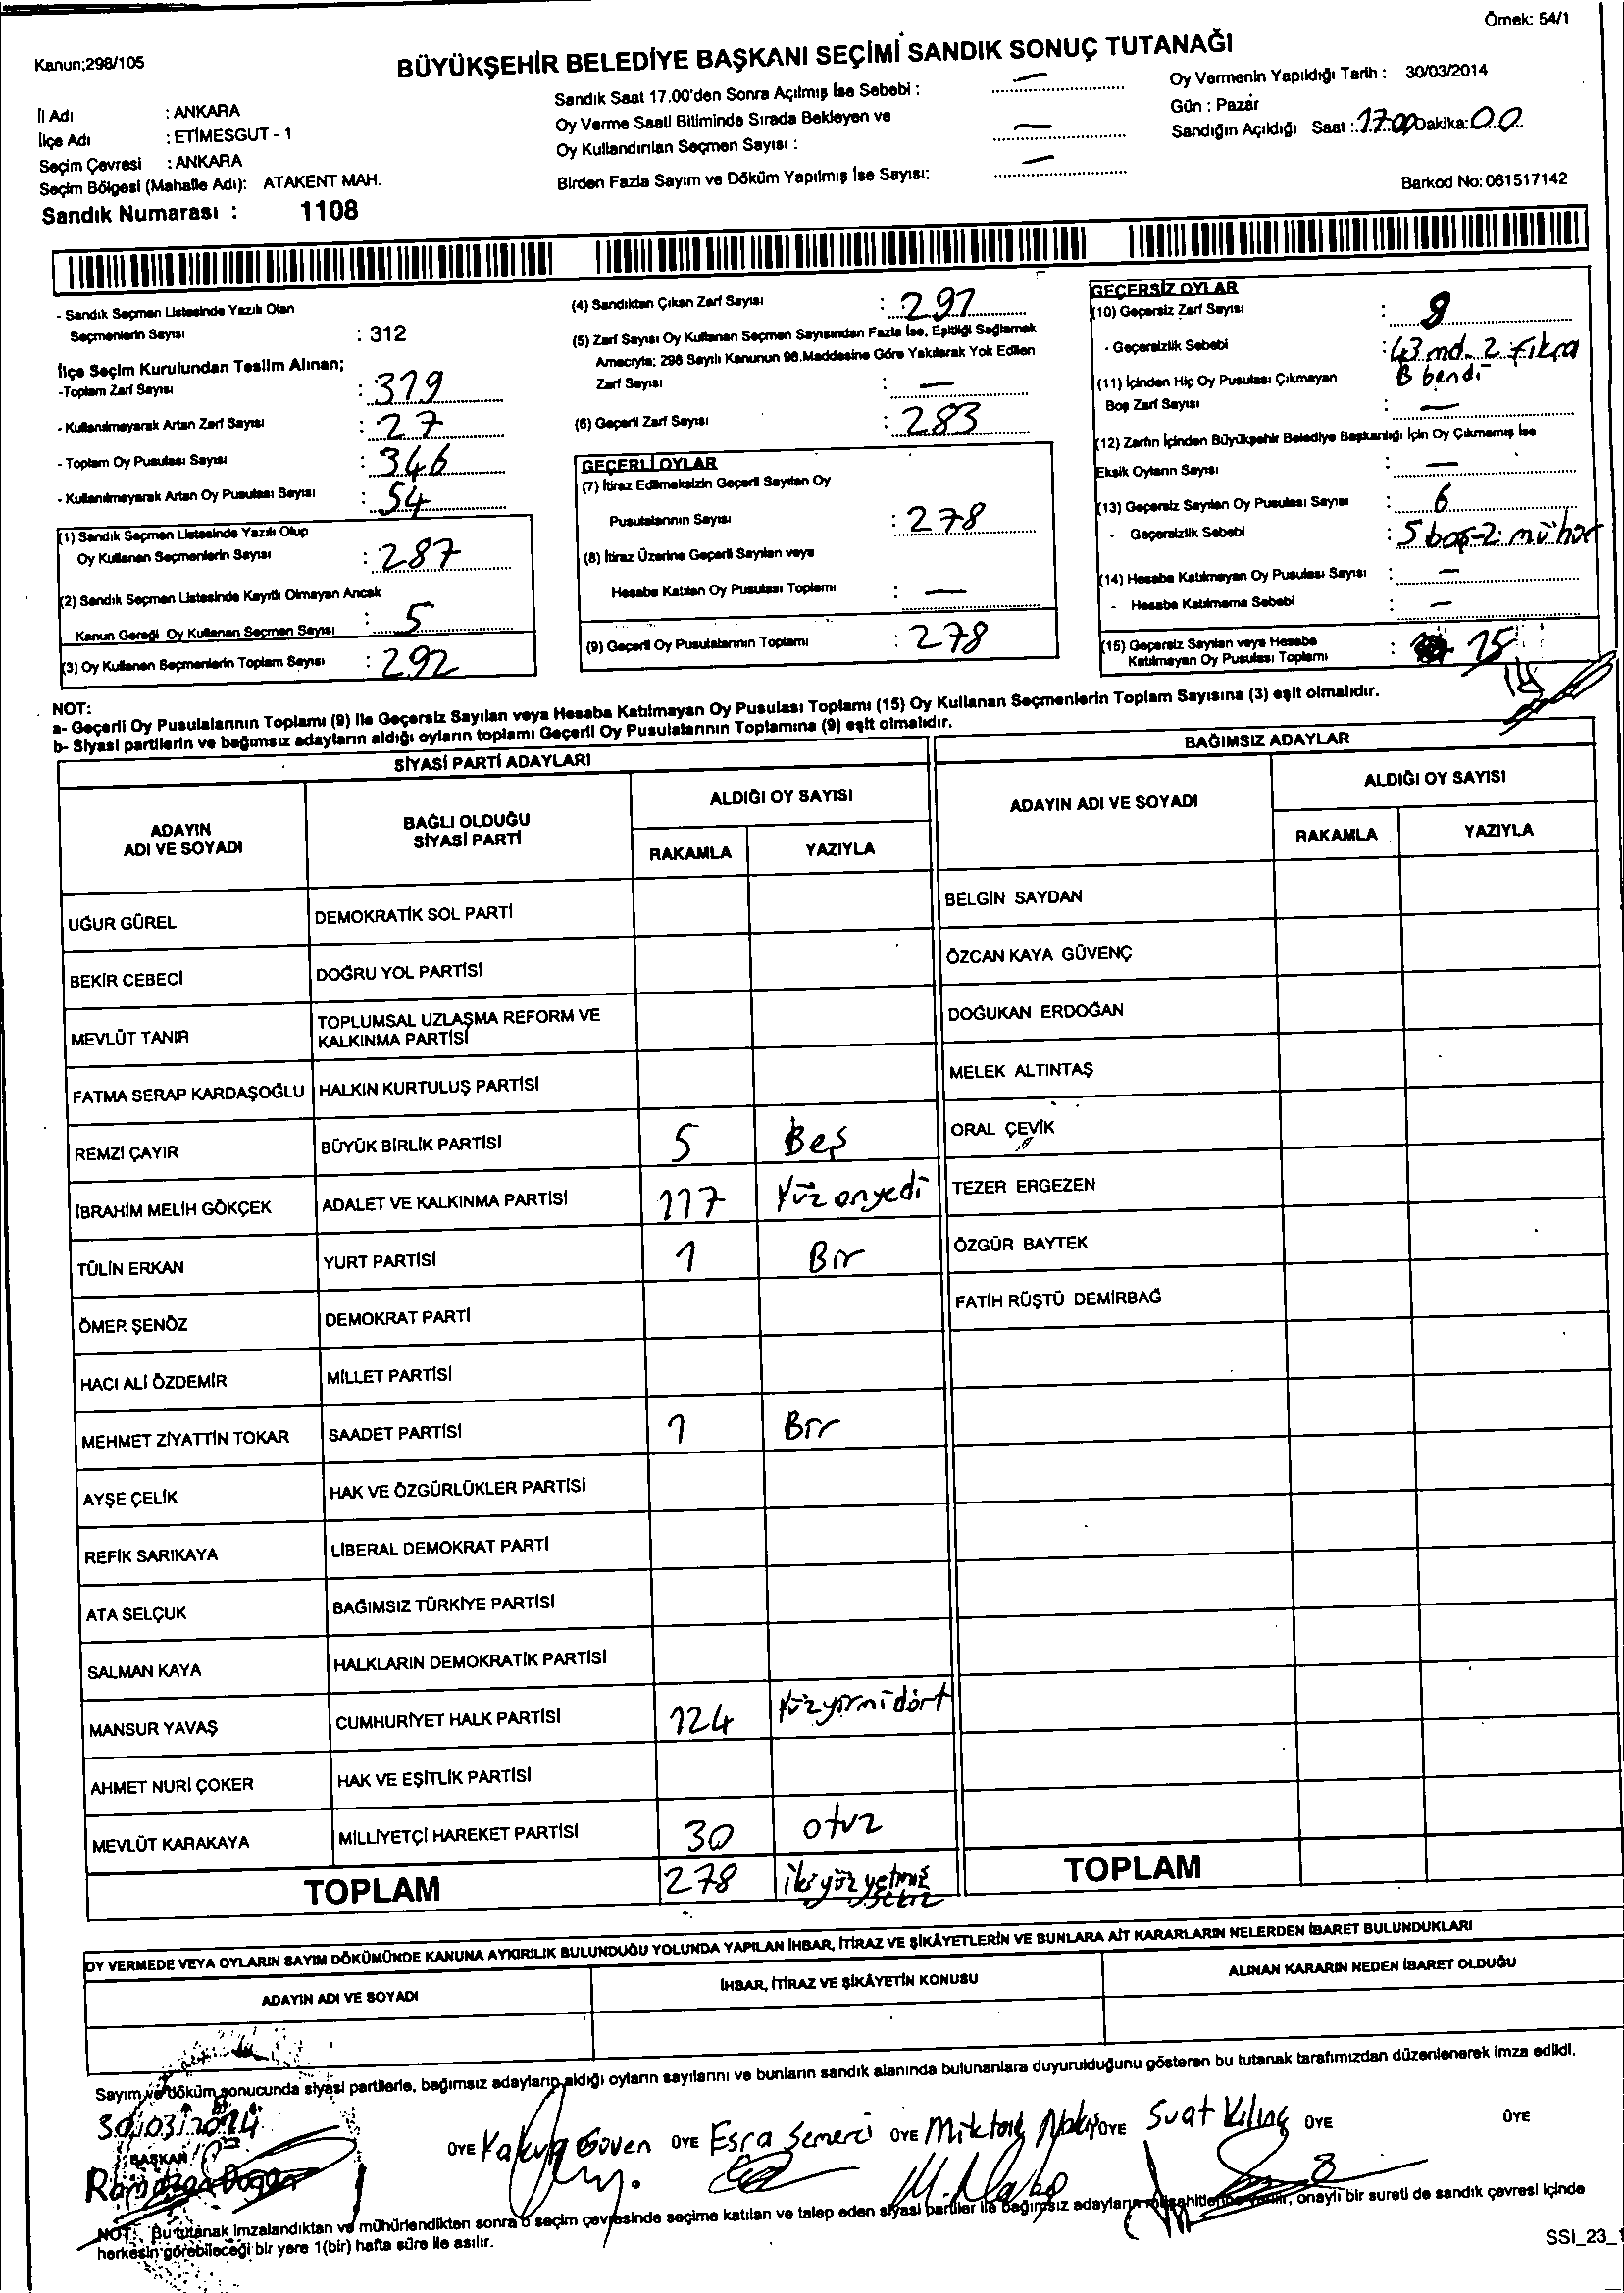 Örnek: 54/1
Kanun;298/105
BÜYÜKŞEHİR BELEDİYE BAŞKANI SEÇİMİ SANDIK SONUÇ TUTANAĞI
İl Adı : ANKARA
İlçe Adı : ETİMESGUT - 1
Seçim Çevresi : ANKARA
Seçim Bölgesi (Mahalle Adı): ATAKENT MAH.
Sandık Numarası : 1108
Sandık Saat 17.00'den Sonra Açılmış İse Sebebi : —
Oy Verme Saati Bitiminde Sırada Bekleyen ve
Oy Kullandırılan Seçmen Sayısı : —
Birden Fazla Sayım ve Döküm Yapılmış İse Sayısı: —
Oy Vermenin Yapıldığı Tarih : 30/03/2014
Gün : Pazar
Sandığın Açıldığı Saat : 17.00 Dakika: 00
Barkod No: 061517142
- Sandık Seçmen Listesinde Yazılı Olan
Seçmenlerin Sayısı : 312
İlçe Seçim Kurulundan Teslim Alınan;
-Toplam Zarf Sayısı : 319
- Kullanılmayarak Artan Zarf Sayısı : 27
- Toplam Oy Pusulası Sayısı : 346
- Kullanılmayarak Artan Oy Pusulası Sayısı : 54
(1) Sandık Seçmen Listesinde Yazılı Olup
Oy Kullanan Seçmenlerin Sayısı : 287
(2) Sandık Seçmen Listesinde Kayıtlı Olmayan Ancak
Kanun Gereği Oy Kullanan Seçmen Sayısı : 5
(3) Oy Kullanan Seçmenlerin Toplam Sayısı : 292
(4) Sandıktan Çıkan Zarf Sayısı : 297
(5) Zarf Sayısı Oy Kullanan Seçmen Sayısından Fazla İse, Eşitliği Sağlamak
Amacıyla; 298 Sayılı Kanunun 98.Maddesine Göre Yakılarak Yok Edilen
Zarf Sayısı : —
(6) Geçerli Zarf Sayısı : 283
GEÇERLİ OYLAR
(7) İtiraz Edilmeksizin Geçerli Sayılan Oy
Pusulalarının Sayısı : 278
(8) İtiraz Üzerine Geçerli Sayılan veya
Hesaba Katılan Oy Pusulası Toplamı : —
(9) Geçerli Oy Pusulalarının Toplamı : 278
GEÇERSİZ OYLAR
(10) Geçersiz Zarf Sayısı : 9
- Geçersizlik Sebebi : 43 md. 2 fıkra
B bendi
(11) İçinden Hiç Oy Pusulası Çıkmayan
Boş Zarf Sayısı : —
(12) Zarfın İçinden Büyükşehir Belediye Başkanlığı İçin Oy Çıkmamış İse
Eksik Oyların Sayısı : —
(13) Geçersiz Sayılan Oy Pusulası Sayısı : 6
- Geçersizlik Sebebi : 5 boş-2 mühür
(14) Hesaba Katılmayan Oy Pusulası Sayısı : —
- Hesaba Katılmama Sebebi : —
(15) Geçersiz Sayılan veya Hesaba
Katılmayan Oy Pusulası Toplamı : 15
14
NOT:
a- Geçerli Oy Pusulalarının Toplamı (9) ile Geçersiz Sayılan veya Hesaba Katılmayan Oy Pusulası Toplamı (15) Oy Kullanan Seçmenlerin Toplam Sayısına (3) eşit olmalıdır.
b- Siyasi partilerin ve bağımsız adayların aldığı oyların toplamı Geçerli Oy Pusulalarının Toplamına (9) eşit olmalıdır.
SİYASİ PARTİ ADAYLARI
BAĞIMSIZ ADAYLAR
ADAYIN
ADI VE SOYADI
BAĞLI OLDUĞU
SİYASİ PARTİ
ALDIĞI OY SAYISI
RAKAMLA YAZIYLA
ADAYIN ADI VE SOYADI
ALDIĞI OY SAYISI
RAKAMLA YAZIYLA
UĞUR GÜREL DEMOKRATİK SOL PARTİ
BEKİR CEBECİ DOĞRU YOL PARTİSİ
MEVLÜT TANIR TOPLUMSAL UZLAŞMA REFORM VE
KALKINMA PARTİSİ
FATMA SERAP KARDAŞOĞLU HALKIN KURTULUŞ PARTİSİ
REMZİ ÇAYIR BÜYÜK BİRLİK PARTİSİ 5 Beş
İBRAHİM MELİH GÖKÇEK ADALET VE KALKINMA PARTİSİ 117 Yüzonyedi
TÜLİN ERKAN YURT PARTİSİ 1 Bir
ÖMER ŞENÖZ DEMOKRAT PARTİ
HACI ALİ ÖZDEMİR MİLLET PARTİSİ
MEHMET ZİYATTİN TOKAR SAADET PARTİSİ 1 Bir
AYŞE ÇELİK HAK VE ÖZGÜRLÜKLER PARTİSİ
REFİK SARIKAYA LİBERAL DEMOKRAT PARTİ
ATA SELÇUK BAĞIMSIZ TÜRKİYE PARTİSİ
SALMAN KAYA HALKLARIN DEMOKRATİK PARTİSİ
MANSUR YAVAŞ CUMHURİYET HALK PARTİSİ 124 Yüzyirmidört
AHMET NURİ ÇOKER HAK VE EŞİTLİK PARTİSİ
MEVLÜT KARAKAYA MİLLİYETÇİ HAREKET PARTİSİ 30 otuz
TOPLAM 278 ikiyüzyetmiş
sekiz
BELGİN SAYDAN
ÖZCAN KAYA GÜVENÇ
DOĞUKAN ERDOĞAN
MELEK ALTINTAŞ
ORAL ÇEVİK
TEZER ERGEZEN
ÖZGÜR BAYTEK
FATİH RÜŞTÜ DEMİRBAĞ
TOPLAM
OY VERMEDE VEYA OYLARIN SAYIM DÖKÜMÜNDE KANUNA AYKIRILIK BULUNDUĞU YOLUNDA YAPILAN İHBAR, İTİRAZ VE ŞİKÂYETLERİN VE BUNLARA AİT KARARLARIN NELERDEN İBARET BULUNDUKLARI
ADAYIN ADI VE SOYADI
İHBAR, İTİRAZ VE ŞİKÂYETİN KONUSU
ALINAN KARARIN NEDEN İBARET OLDUĞU
Sayım ve döküm sonucunda siyasi partilerle, bağımsız adayların aldığı oyların sayılarını ve bunların sandık alanında bulunanlara duyurulduğunu gösteren bu tutanak tarafımızdan düzenlenerek imza edildi.
30/03/2014
BAŞKAN
Ramazan Doğan
ÜYE Yakup Güven ÜYE Esra Semerci ÜYE ÜYE Suat Kılınç ÜYE ÜYE
NOT: Bu tutanak imzalandıktan ve mühürlendikten sonra o seçim çevresinde seçime katılan ve talep eden siyasi partiler ile bağımsız adayların müşahitlerine verilir, onaylı bir sureti de sandık çevresi içinde
herkesin görebileceği bir yere 1(bir) hafta süre ile asılır.
SSI_23_1